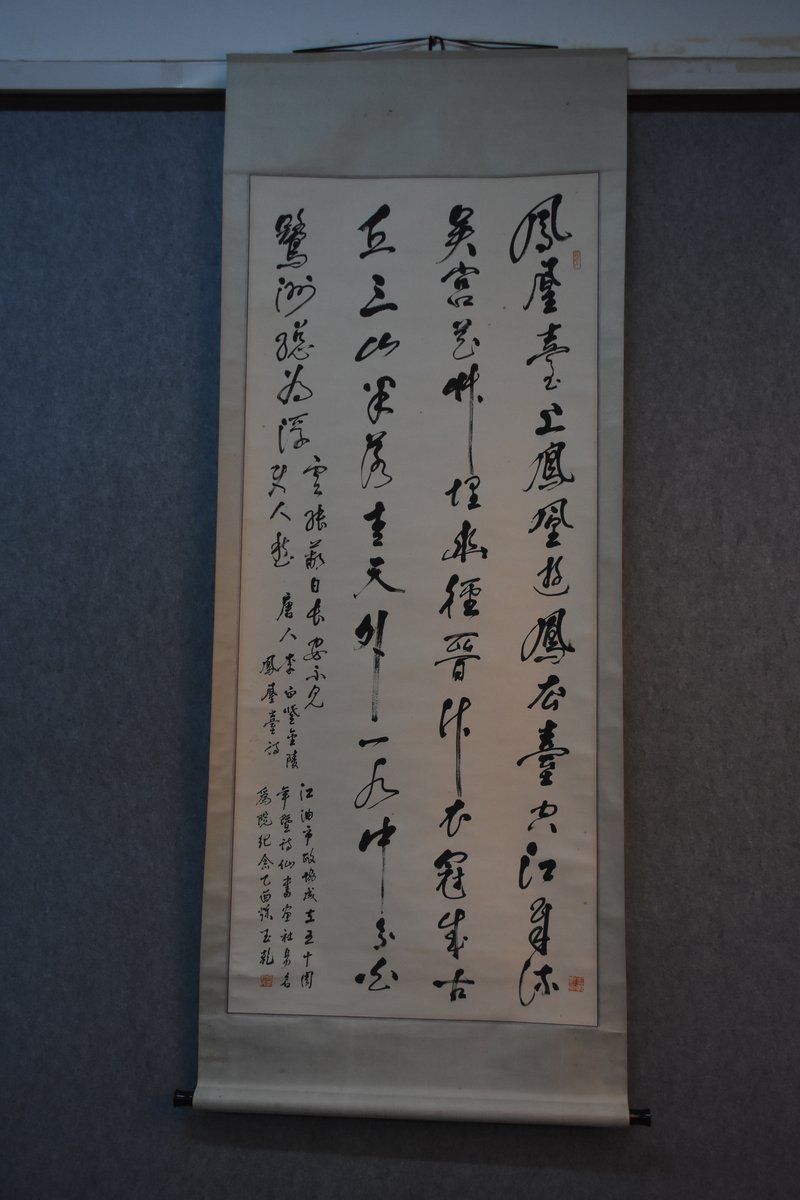 鳳凰臺上鳳凰遊鳳去臺空江自流
吳宮花艸埋幽徑晉代衣冠成古
丘三山半落青天外一水中分白
鷺洲總為浮
雲能蔽日長安不見
使人愁
唐人李白登金陵
鳳凰臺詩
江油市政協成立五十周
年暨詩仙書畫社易名
爲院紀念乙酉玉乾